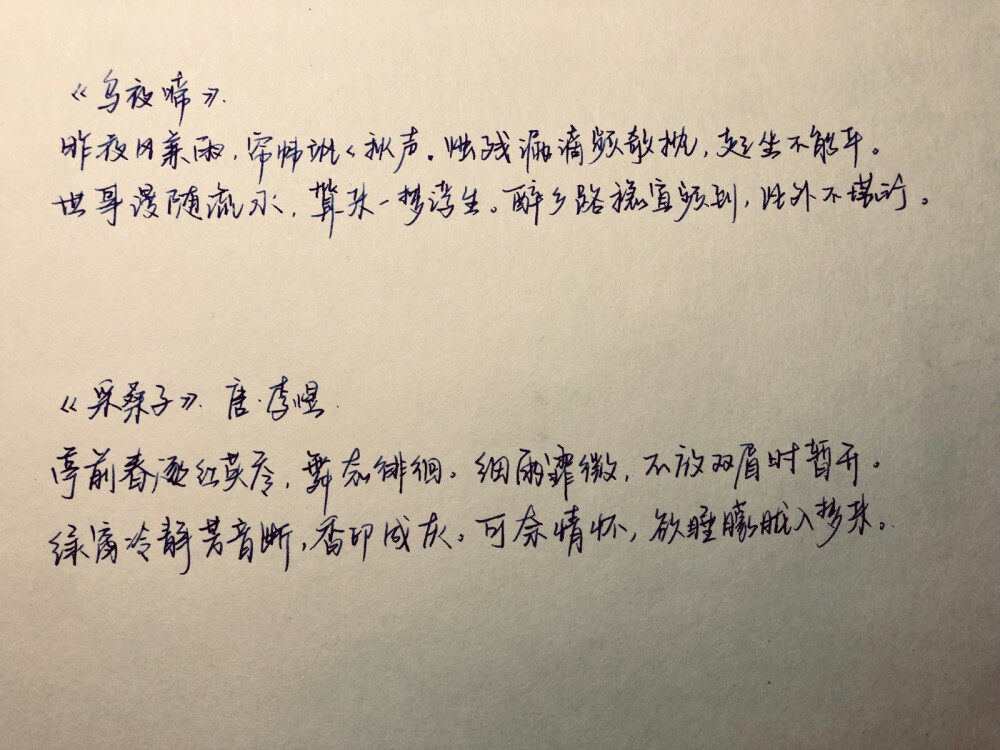 《乌夜啼》.
昨夜风兼雨，帘帏飒々秋声。烛残漏滴频欹枕，起坐不能平。
世事漫随流水，算来一梦浮生。醉乡路稳宜频到，此外不堪行。
《采桑子》. 唐·李煜.
亭前春逐红英尽，舞态徘徊。细雨霏微，不放双眉时暂开。
绿窗冷静芳音断，香印成灰。可奈情怀，欲睡朦胧入梦来。